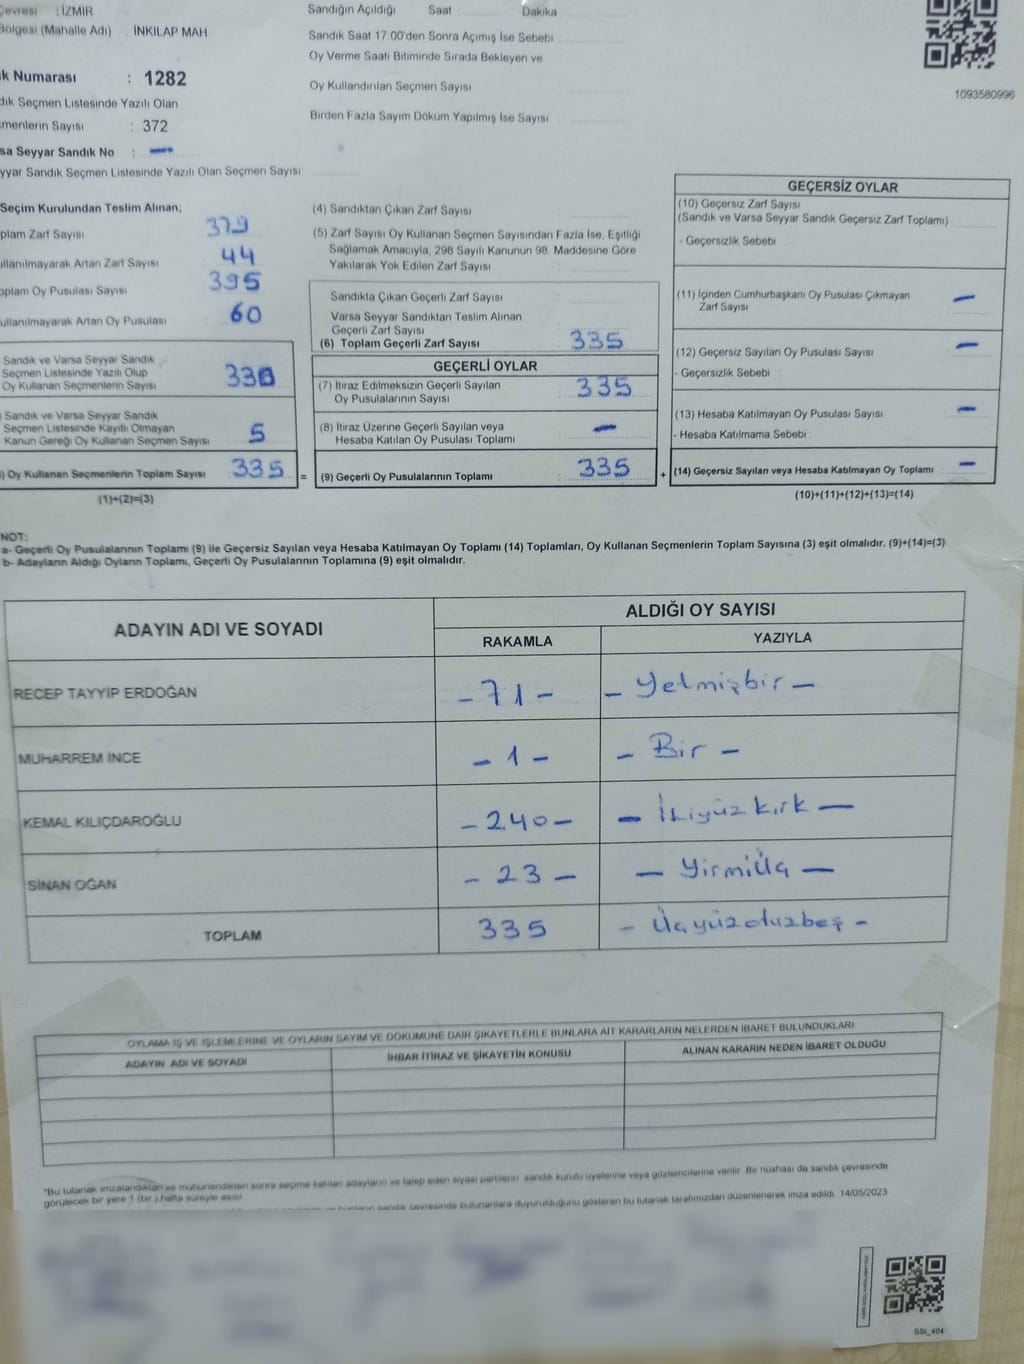 Çevresi : İZMİR
Bölgesi (Mahalle Adı) : İNKILAP MAH
k Numarası : 1282
dık Seçmen Listesinde Yazılı Olan
menlerin Sayısı : 372
sa Seyyar Sandık No : —
yyar Sandık Seçmen Listesinde Yazılı Olan Seçmen Sayısı
Sandığın Açıldığı Saat Dakika
Sandık Saat 17:00'den Sonra Açımış İse Sebebi
Oy Verme Saati Bitiminde Sırada Bekleyen ve
Oy Kullandırılan Seçmen Sayısı
Birden Fazla Sayım Döküm Yapılmış İse Sayısı
1093580996
Seçim Kurulundan Teslim Alınan;
plam Zarf Sayısı 379
ullanılmayarak Artan Zarf Sayısı 44
oplam Oy Pusulası Sayısı 395
ullanılmayarak Artan Oy Pusulası 60
Sandık ve Varsa Seyyar Sandık
Seçmen Listesinde Yazılı Olup
Oy Kullanan Seçmenlerin Sayısı 330
) Sandık ve Varsa Seyyar Sandık
Seçmen Listesinde Kayıtlı Olmayan
Kanun Gereği Oy Kullanan Seçmen Sayısı 5
) Oy Kullanan Seçmenlerin Toplam Sayısı 335 =
(1)+(2)=(3)
(4) Sandıktan Çıkan Zarf Sayısı
(5) Zarf Sayısı Oy Kullanan Seçmen Sayısından Fazla İse, Eşitliği
Sağlamak Amacıyla, 298 Sayılı Kanunun 98. Maddesine Göre
Yakılarak Yok Edilen Zarf Sayısı
Sandıkta Çıkan Geçerli Zarf Sayısı
Varsa Seyyar Sandıktan Teslim Alınan
Geçerli Zarf Sayısı
(6) Toplam Geçerli Zarf Sayısı 335
GEÇERLİ OYLAR
(7) İtiraz Edilmeksizin Geçerli Sayılan
Oy Pusulalarının Sayısı 335
(8) İtiraz Üzerine Geçerli Sayılan veya
Hesaba Katılan Oy Pusulası Toplamı —
(9) Geçerli Oy Pusulalarının Toplamı 335 +
GEÇERSİZ OYLAR
(10) Geçersiz Zarf Sayısı
(Sandık ve Varsa Seyyar Sandık Geçersiz Zarf Toplamı)
- Geçersizlik Sebebi :
(11) İçinden Cumhurbaşkanı Oy Pusulası Çıkmayan
Zarf Sayısı —
(12) Geçersiz Sayılan Oy Pusulası Sayısı —
- Geçersizlik Sebebi :
(13) Hesaba Katılmayan Oy Pusulası Sayısı —
- Hesaba Katılmama Sebebi :
(14) Geçersiz Sayılan veya Hesaba Katılmayan Oy Toplamı —
(10)+(11)+(12)+(13)=(14)
NOT:
a- Geçerli Oy Pusulalarının Toplamı (9) ile Geçersiz Sayılan veya Hesaba Katılmayan Oy Toplamı (14) Toplamları, Oy Kullanan Seçmenlerin Toplam Sayısına (3) eşit olmalıdır. (9)+(14)=(3)
b- Adayların Aldığı Oyların Toplamı, Geçerli Oy Pusulalarının Toplamına (9) eşit olmalıdır.
ADAYIN ADI VE SOYADI ALDIĞI OY SAYISI
RAKAMLA YAZIYLA
RECEP TAYYİP ERDOĞAN - 71 - - Yetmişbir -
MUHARREM İNCE - 1 - - Bir -
KEMAL KILIÇDAROĞLU - 240 - - İkiyüz kırk -
SİNAN OĞAN - 23 - - Yirmiüç -
TOPLAM 335 - Üçyüzotuzbeş -
OYLAMA İŞ VE İŞLEMLERİNE VE OYLARIN SAYIM VE DÖKÜMÜNE DAİR ŞİKAYETLERLE BUNLARA AİT KARARLARIN NELERDEN İBARET BULUNDUKLARI
ADAYIN ADI VE SOYADI İHBAR İTİRAZ VE ŞİKAYETİN KONUSU ALINAN KARARIN NEDEN İBARET OLDUĞU
*Bu tutanak imzalandıktan ve mühürlendikten sonra seçime katılan adayların ve talep eden siyasi partilerin sandık kurulu üyelerine veya gözlemcilerine verilir. Bir nüshası da sandık çevresinde
görülecek bir yere 1 (bir ) hafta süreyle asılır.
sandık çevresinde bulunanlara duyurulduğunu gösteren bu tutanak tarafımızdan düzenlenerek imza edildi. 14/05/2023
SSI_404